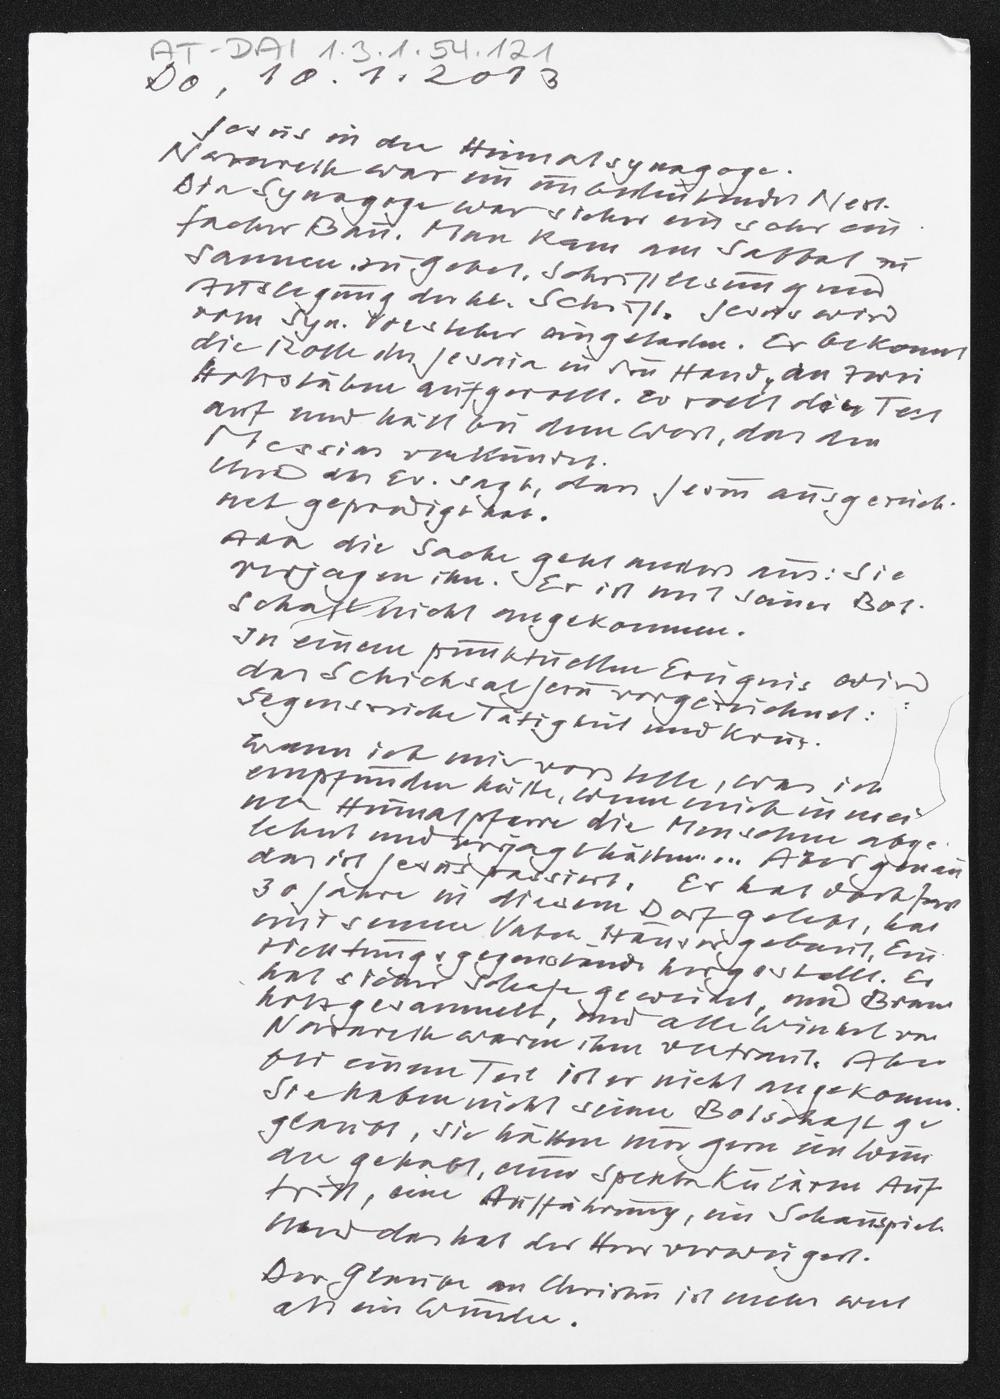 AT-DAI 1.3.1.54.121
Do, 10.1.2013
Jesus in der Heimatsynagoge.
Nazareth war ein unbedeutendes Nest.
Die Synagoge war sicher ein sehr ein
facher Bau. Man kam am Sabbat zu
sammen zu Gebet, Schriftlesung und
Auslegung der hl. Schrift. Jesus wird
vom Syn. Vorsteher eingeladen. Er bekommt
die Rolle des Jesaia in die Hand, an zwei
Holzstäben aufgerollt. Er rollt den Text
auf und hält bei dem Wort, das den
Messias verkündet.
Und das Ev. sagt, dass Jesus ausgezeich-
net gepredigt hat.
Aber die Sache geht anders aus: Sie
verjagen ihn. Er ist mit seiner Bot-
schaft nicht angekommen.
In einem punktuellen Ereignis wird
das Schicksal Jesu vorgezeichnet:
Segensreiche Tätigkeit und Kreuz.
Wenn ich mir vorstelle, was ich
empfunden hätte, wenn mich in mei
ner Heimatpfarre die Menschen abge-
lehnt und verjagt hätten... Aber genau
das ist Jesus passiert. Er hat doch fast
30 Jahre in diesem Dorf gelebt, hat
mit seinem Vater Häuser gebaut, Ein
richtungsgegenstände hergestellt. Er
hat sicher Schafe geweidet, und Brenn
holz gesammelt, und alle Winkel von
Nazareth waren ihm vertraut. Aber
bei einem Teil ist er nicht angekommen.
Sie haben nicht seine Botschaft ge
glaubt, sie hätten nur gern ein Wun
der gehabt, einen spektakulären Auf
tritt, eine Aufführung, ein Schauspiel.
Und das hat der Herr verweigert.
Der Glaube an Christus ist mehr wert
als ein Wunder.